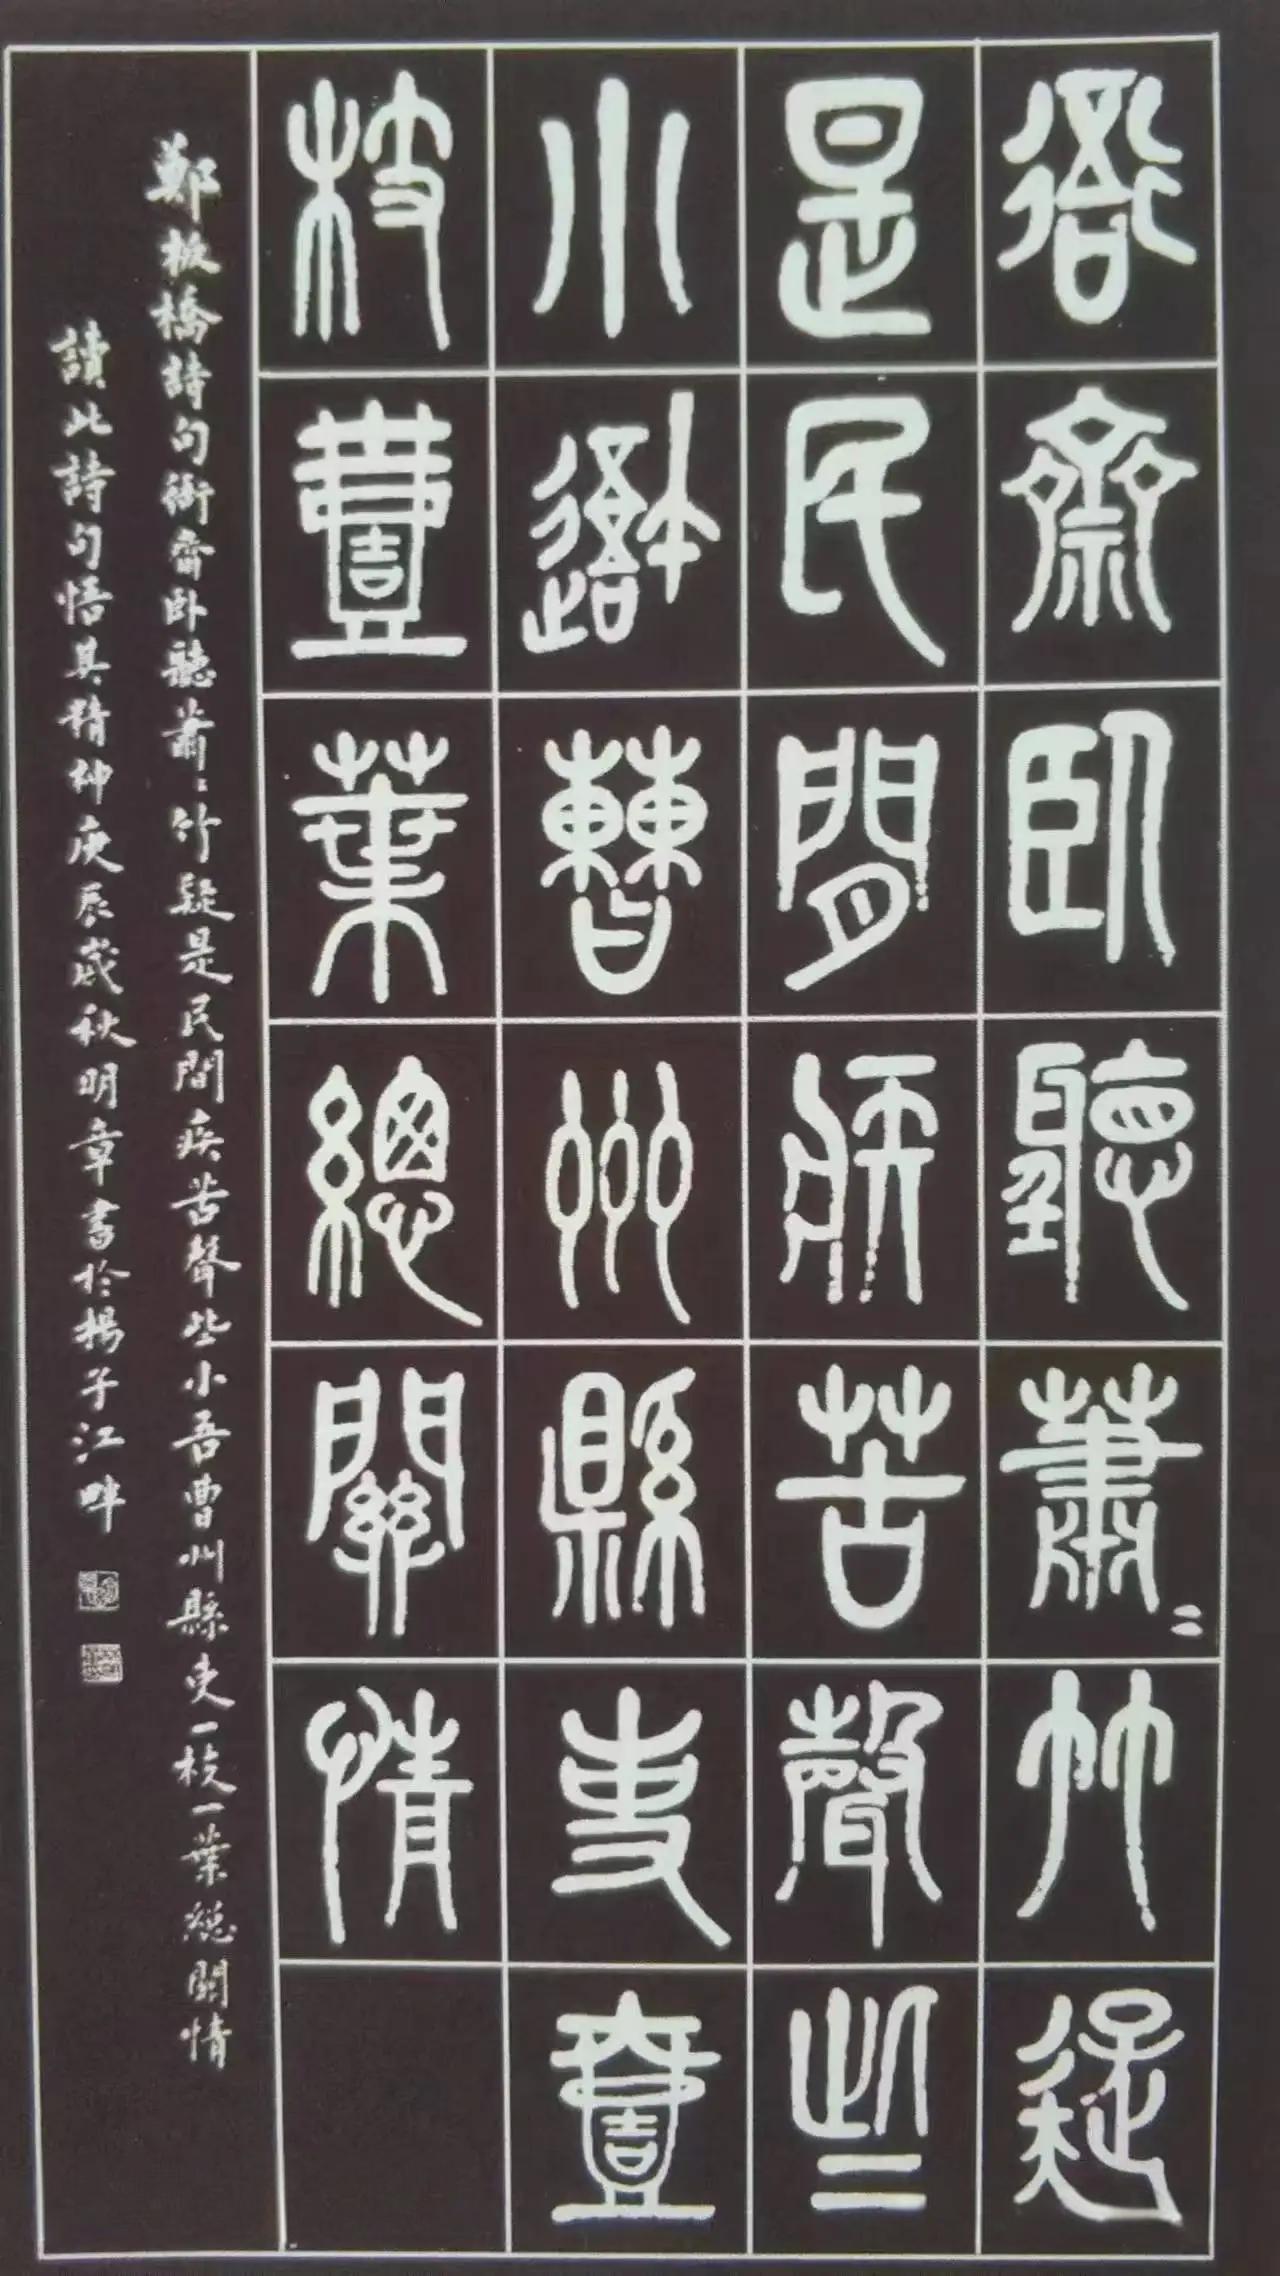 衙齋卧聽蕭〻竹疑
是民間疾苦聲些
小吾曹州縣吏壹
枝壹葉總關情
鄭板橋詩句衙齋卧聽蕭〻竹疑是民間疾苦聲些小吾曹州縣吏一枝一葉總關情
讀此詩句悟其精神庚辰歲秋明章書於揚子江畔